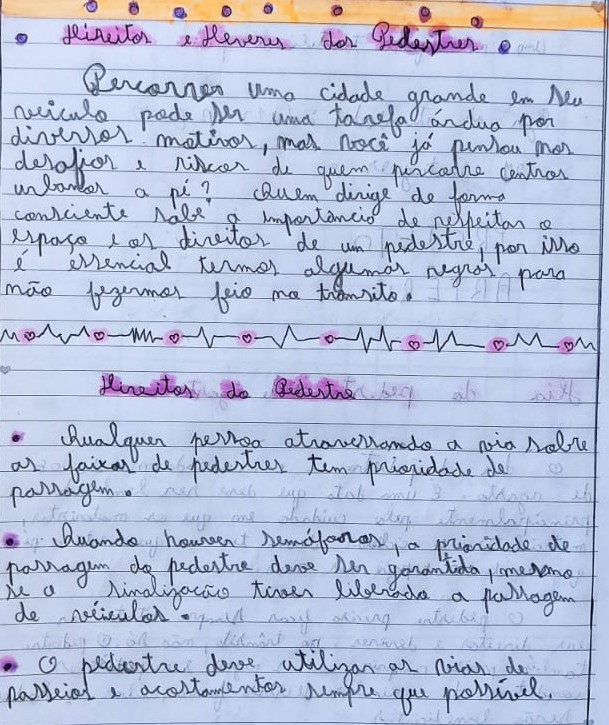 Direitos e Deveres dos Pedestres
Percorrer uma cidade grande em seu
veículo pode ser uma tarefa árdua por
diversos motivos, mas você já pensou nos
desafios e riscos de quem percorre centros
urbanos a pé? Quem dirige de forma
consciente sabe a importância de respeitar o
espaço e os direitos de um pedestre, por isso
é essencial termos algumas regras para
não fazermos feio no trânsito.
Direitos do Pedestre
• Qualquer pessoa atravessando a via sobre
as faixas de pedestres tem prioridade de
passagem.
• Quando houver semáforos, a prioridade de
passagem do pedestre deve ser garantida, mesmo
se a sinalização tiver liberado a passagem
de veículos.
• O pedestre deve utilizar as vias de
passeios e acostamentos sempre que possível.